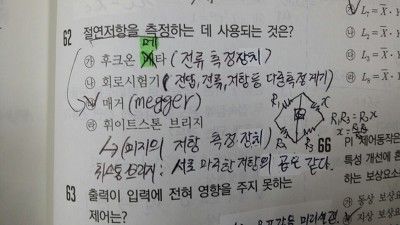 62 절연저항을 측정하는 데 사용되는 것은?
㉮ 후크온 메타 (전류 측정장치)
㉯ 회로시험기 (전압, 전류, 저항 등 다측정계기)
㉰ 매거 (megger)
㉱ 휘이트스톤 브리지
→ (미지의 저항 측정 장치)
휘스톤 브리지: 서로 마주한 저항의 곱은 같다.
R1 R2
R1R3 = R2X
X =
63 출력이 입력에 전혀 영향을 주지 못하는
제어는?
L7 = X̄
㉱ L8 = X̄
L9 = X̄
66
PI 제어동작
특성 개선에 흔
하는 보상요소
㉮ 동상 보상
지상 보상